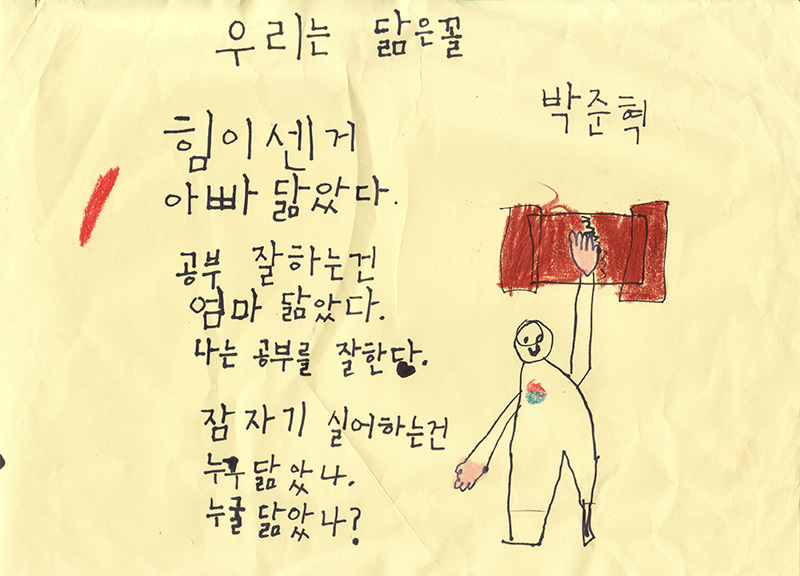 우리는 닮은꼴
박준혁
힘이센거
아빠 닮았다.
공부 잘하는건
엄마 닮았다.
나는 공부를 잘한단.
잠자기 실어하는건
누구 닮았나.
누굴 닮았나?